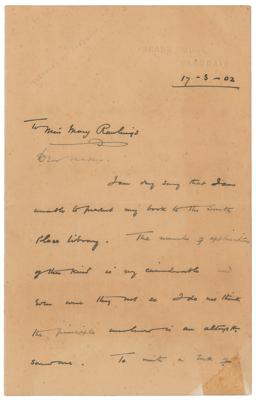 17-3-02
To Miss Mary Rawlings
Dear Madam,
I am very sorry that I am
unable to present my book to the South
Place Library. The number of applications
of this kind is innumerable and
even were they not so I do not think
the principle involved is an altogether
one. To write a book of